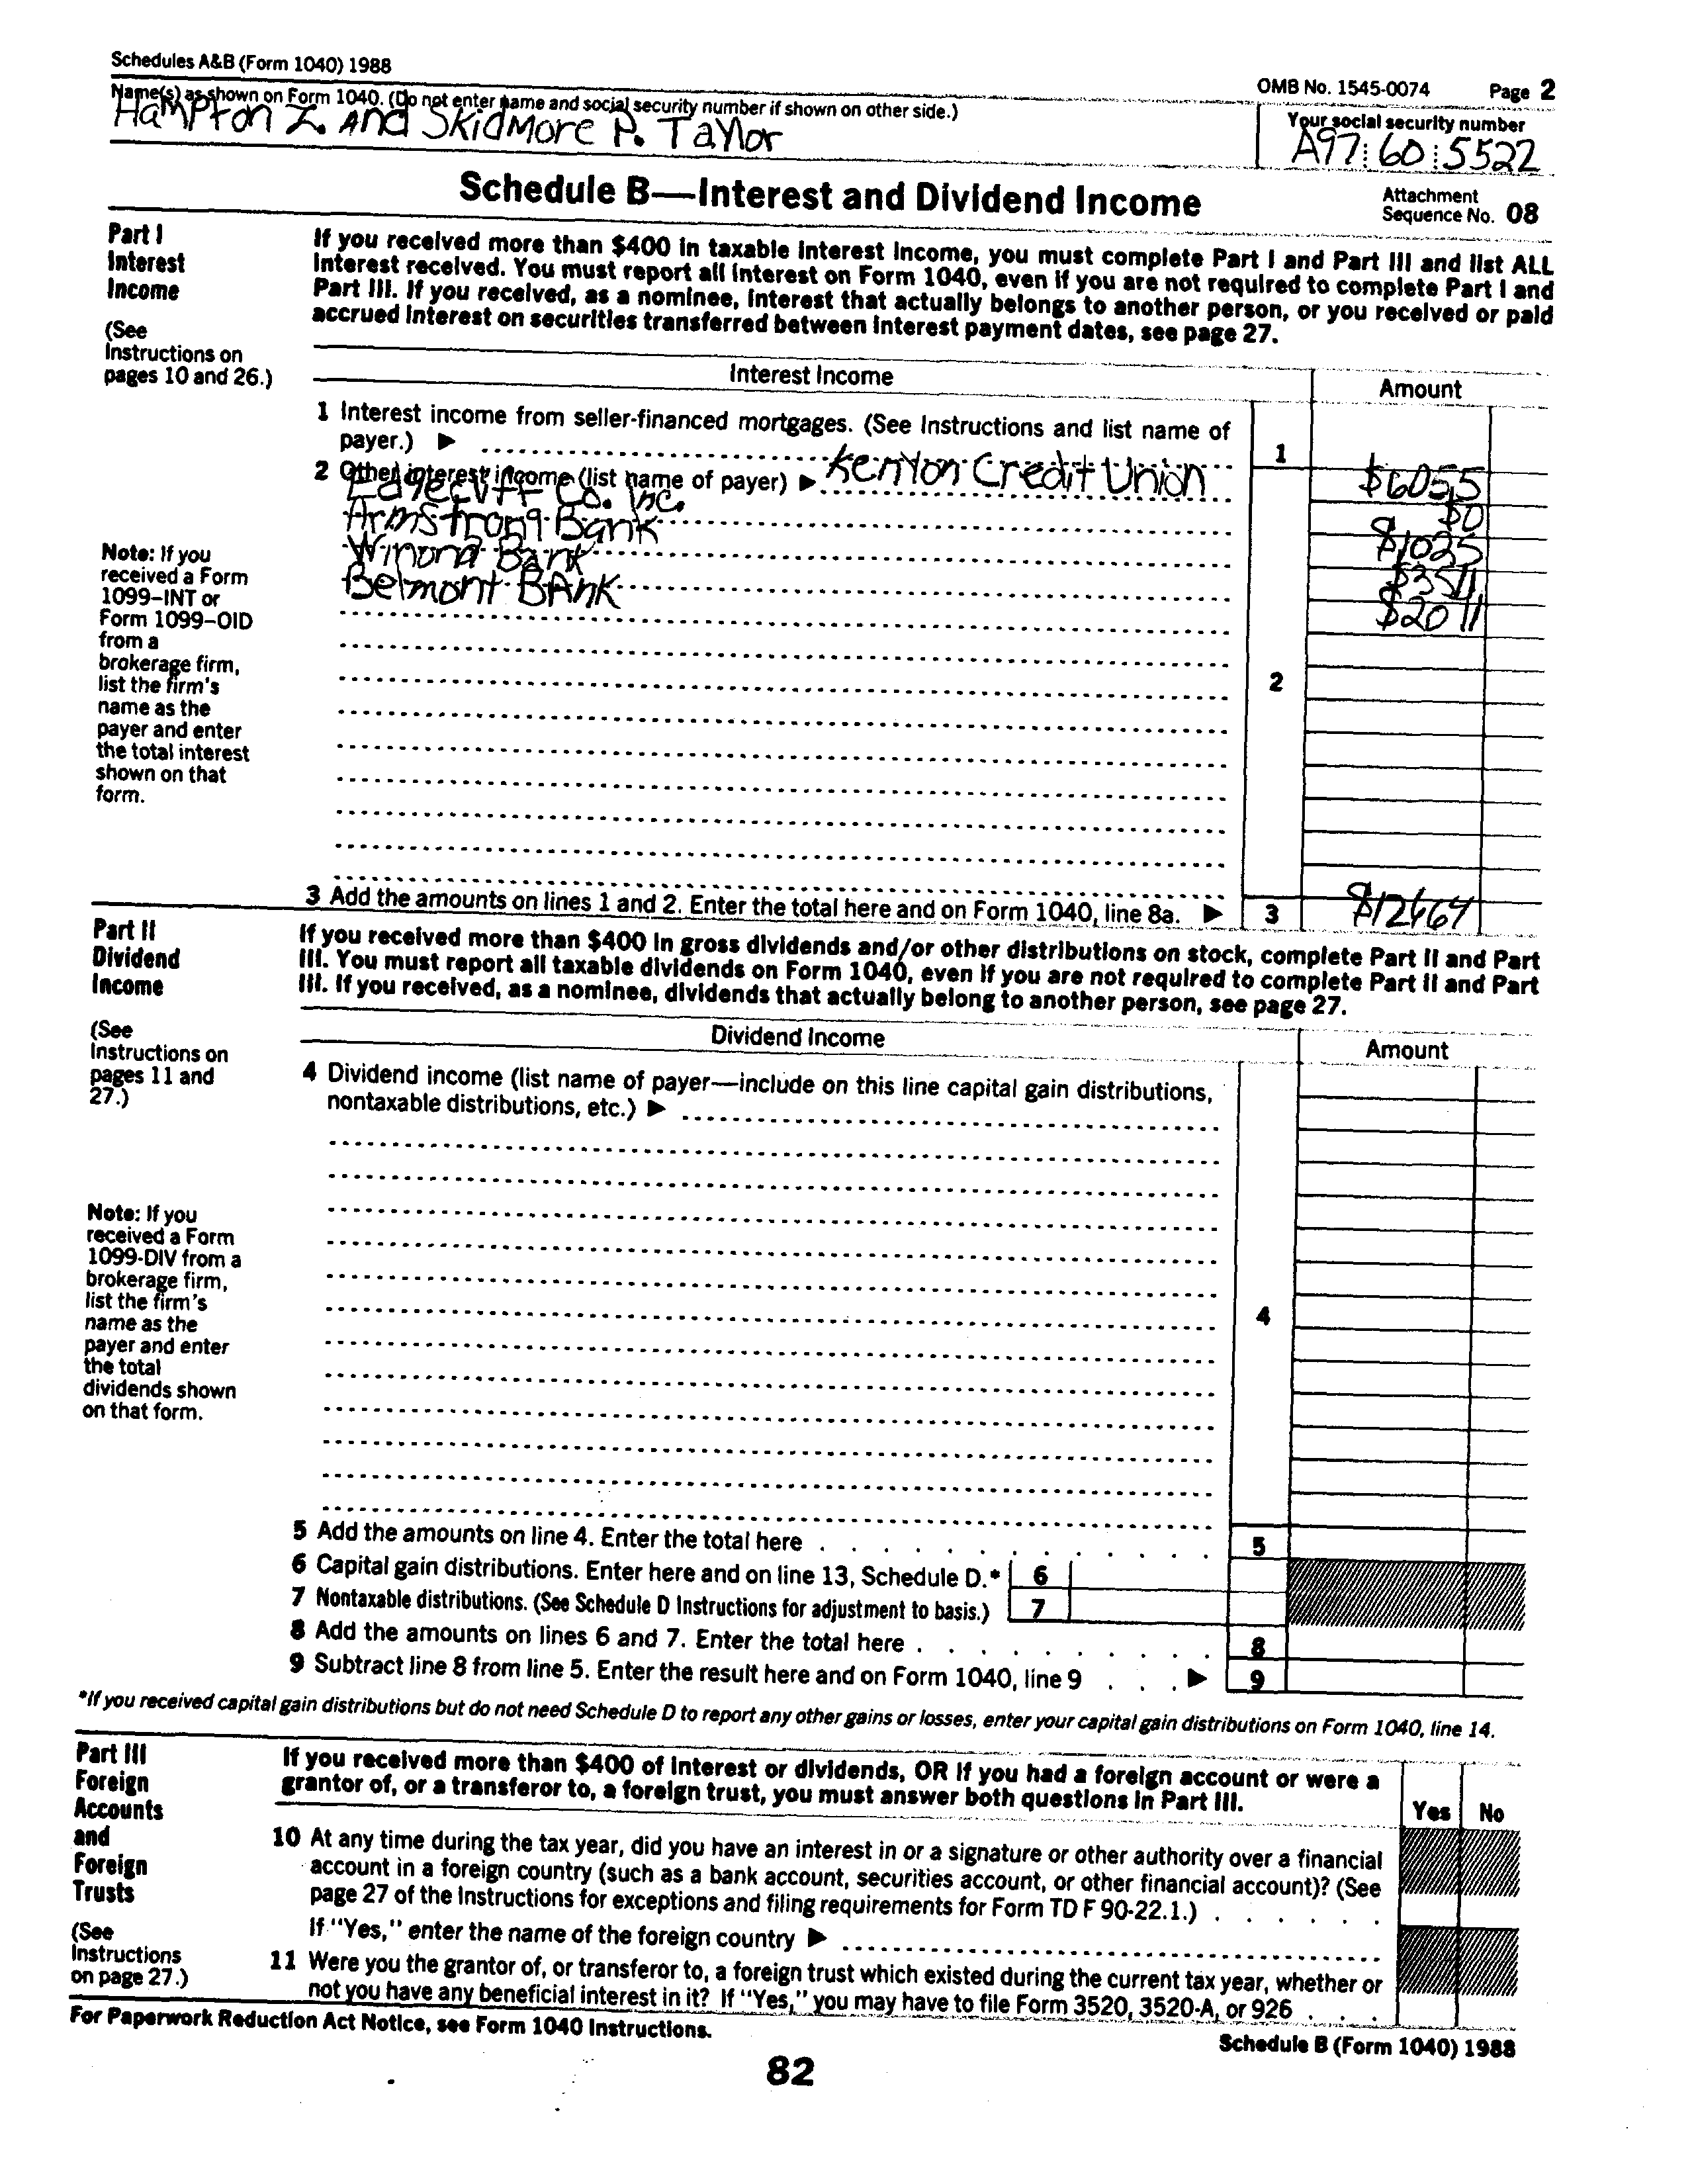 Schedules A&B (Form 1040) 1988
OMB No. 1545-0074 Page 2
Name(s) as shown on Form 1040. (Do not enter name and social security number if shown on other side.)
Your social security number
Hampton Z. And Skidmore P. Taylor
A97 60 5522
Schedule B—Interest and Dividend Income
Attachment
Sequence No. 08
Part I
Interest
Income
(See
Instructions on
pages 10 and 26.)
If you received more than $400 in taxable interest income, you must complete Part I and Part III and list ALL
interest received. You must report all interest on Form 1040, even if you are not required to complete Part I and
Part III. If you received, as a nominee, interest that actually belongs to another person, or you received or paid
accrued interest on securities transferred between interest payment dates, see page 27.
Interest Income
Amount
1 Interest income from seller-financed mortgages. (See Instructions and list name of
payer.) ▶
1
2 Other interest income (list name of payer) ▶ Kenyon Credit Union
$6055
Co. Inc.
$0
Armstrong Bank
$1025
Winona Bank
$3511
Belmont BAnk
$2011
Note: If you
received a Form
1099–INT or
Form 1099–OID
from a
brokerage firm,
list the firm's
name as the
payer and enter
the total interest
shown on that
form.
2
3 Add the amounts on lines 1 and 2. Enter the total here and on Form 1040, line 8a. ▶
3
Part II
Dividend
Income
(See
Instructions on
pages 11 and
27.)
If you received more than $400 in gross dividends and/or other distributions on stock, complete Part II and Part
III. You must report all taxable dividends on Form 1040, even if you are not required to complete Part II and Part
III. If you received, as a nominee, dividends that actually belong to another person, see page 27.
Dividend Income
Amount
4 Dividend income (list name of payer—include on this line capital gain distributions,
nontaxable distributions, etc.) ▶
Note: If you
received a Form
1099-DIV from a
brokerage firm,
list the firm's
name as the
payer and enter
the total
dividends shown
on that form.
4
5 Add the amounts on line 4. Enter the total here
5
6 Capital gain distributions. Enter here and on line 13, Schedule D.* 6
7 Nontaxable distributions. (See Schedule D Instructions for adjustment to basis.) 7
8 Add the amounts on lines 6 and 7. Enter the total here
8
9 Subtract line 8 from line 5. Enter the result here and on Form 1040, line 9 ▶
9
*If you received capital gain distributions but do not need Schedule D to report any other gains or losses, enter your capital gain distributions on Form 1040, line 14.
Part III
Foreign
Accounts
and
Foreign
Trusts
(See
Instructions
on page 27.)
If you received more than $400 of interest or dividends, OR if you had a foreign account or were a
grantor of, or a transferor to, a foreign trust, you must answer both questions in Part III.
Yes No
10 At any time during the tax year, did you have an interest in or a signature or other authority over a financial
account in a foreign country (such as a bank account, securities account, or other financial account)? (See
page 27 of the Instructions for exceptions and filing requirements for Form TD F 90-22.1.)
If "Yes," enter the name of the foreign country ▶
11 Were you the grantor of, or transferor to, a foreign trust which existed during the current tax year, whether or
not you have any beneficial interest in it? If "Yes," you may have to file Form 3520, 3520-A, or 926
For Paperwork Reduction Act Notice, see Form 1040 Instructions.
Schedule B (Form 1040) 1988
82